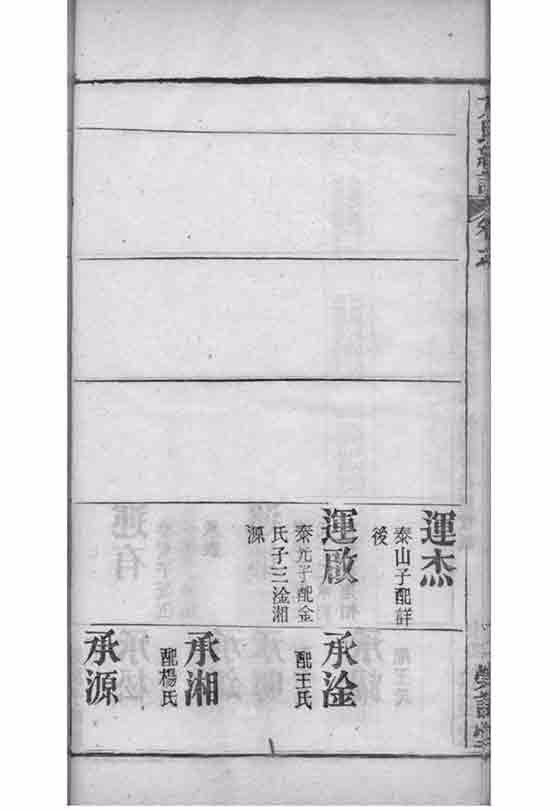 運杰
泰山子配詳
後
運啟
泰元子配金
氏子三淦湘
源
承淦
配王氏
承湘
配楊氏
承源